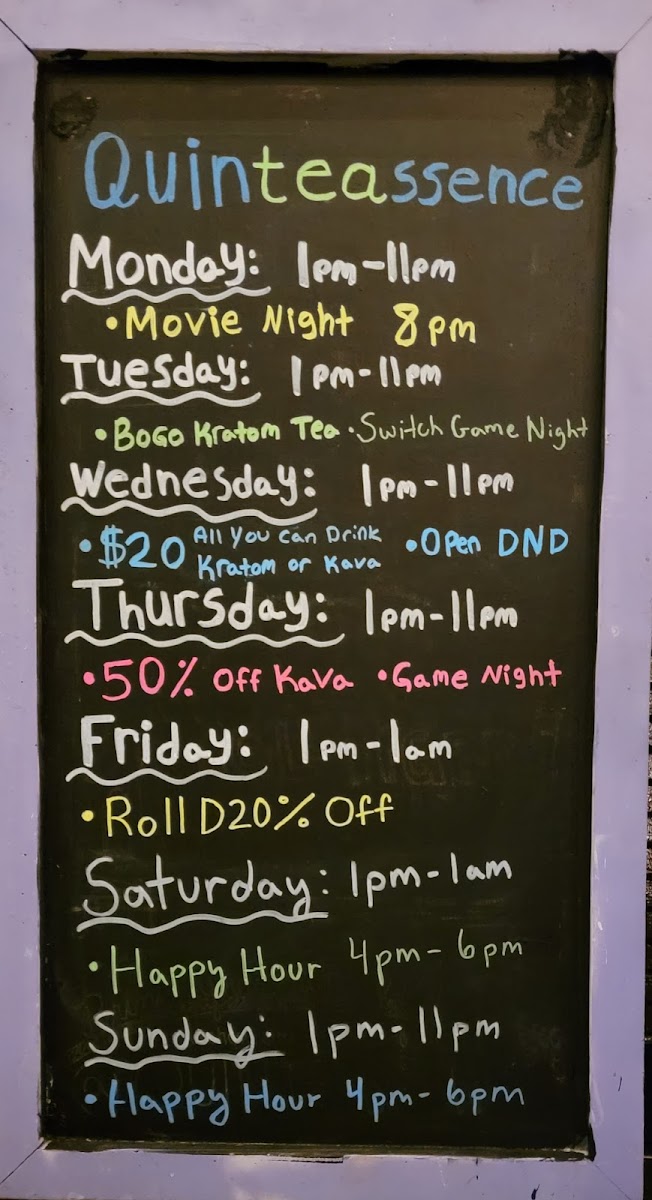 Quinteassence
Monday: 1pm-11pm
•Movie Night 8pm
Tuesday: 1pm-11pm
•BOGO Kratom Tea •Switch Game Night
Wednesday: 1pm-11pm
•$20 All You Can Drink
Kratom or Kava •Open DND
Thursday: 1pm-11pm
•50% Off Kava •Game Night
Friday: 1pm-1am
•Roll D20% Off
Saturday: 1pm-1am
•Happy Hour 4pm-6pm
Sunday: 1pm-11pm
•Happy Hour 4pm-6pm